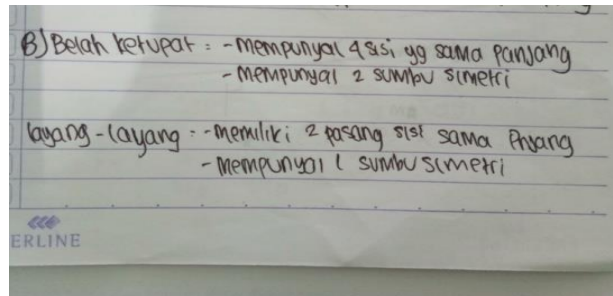 B) Belah ketupat : - mempunyai 4 sisi yg sama panjang
- mempunyai 2 sumbu simetri
layang - layang : - memiliki 2 pasang sisi sama panjang
- mempunyai 1 sumbu simetri
ERLINE